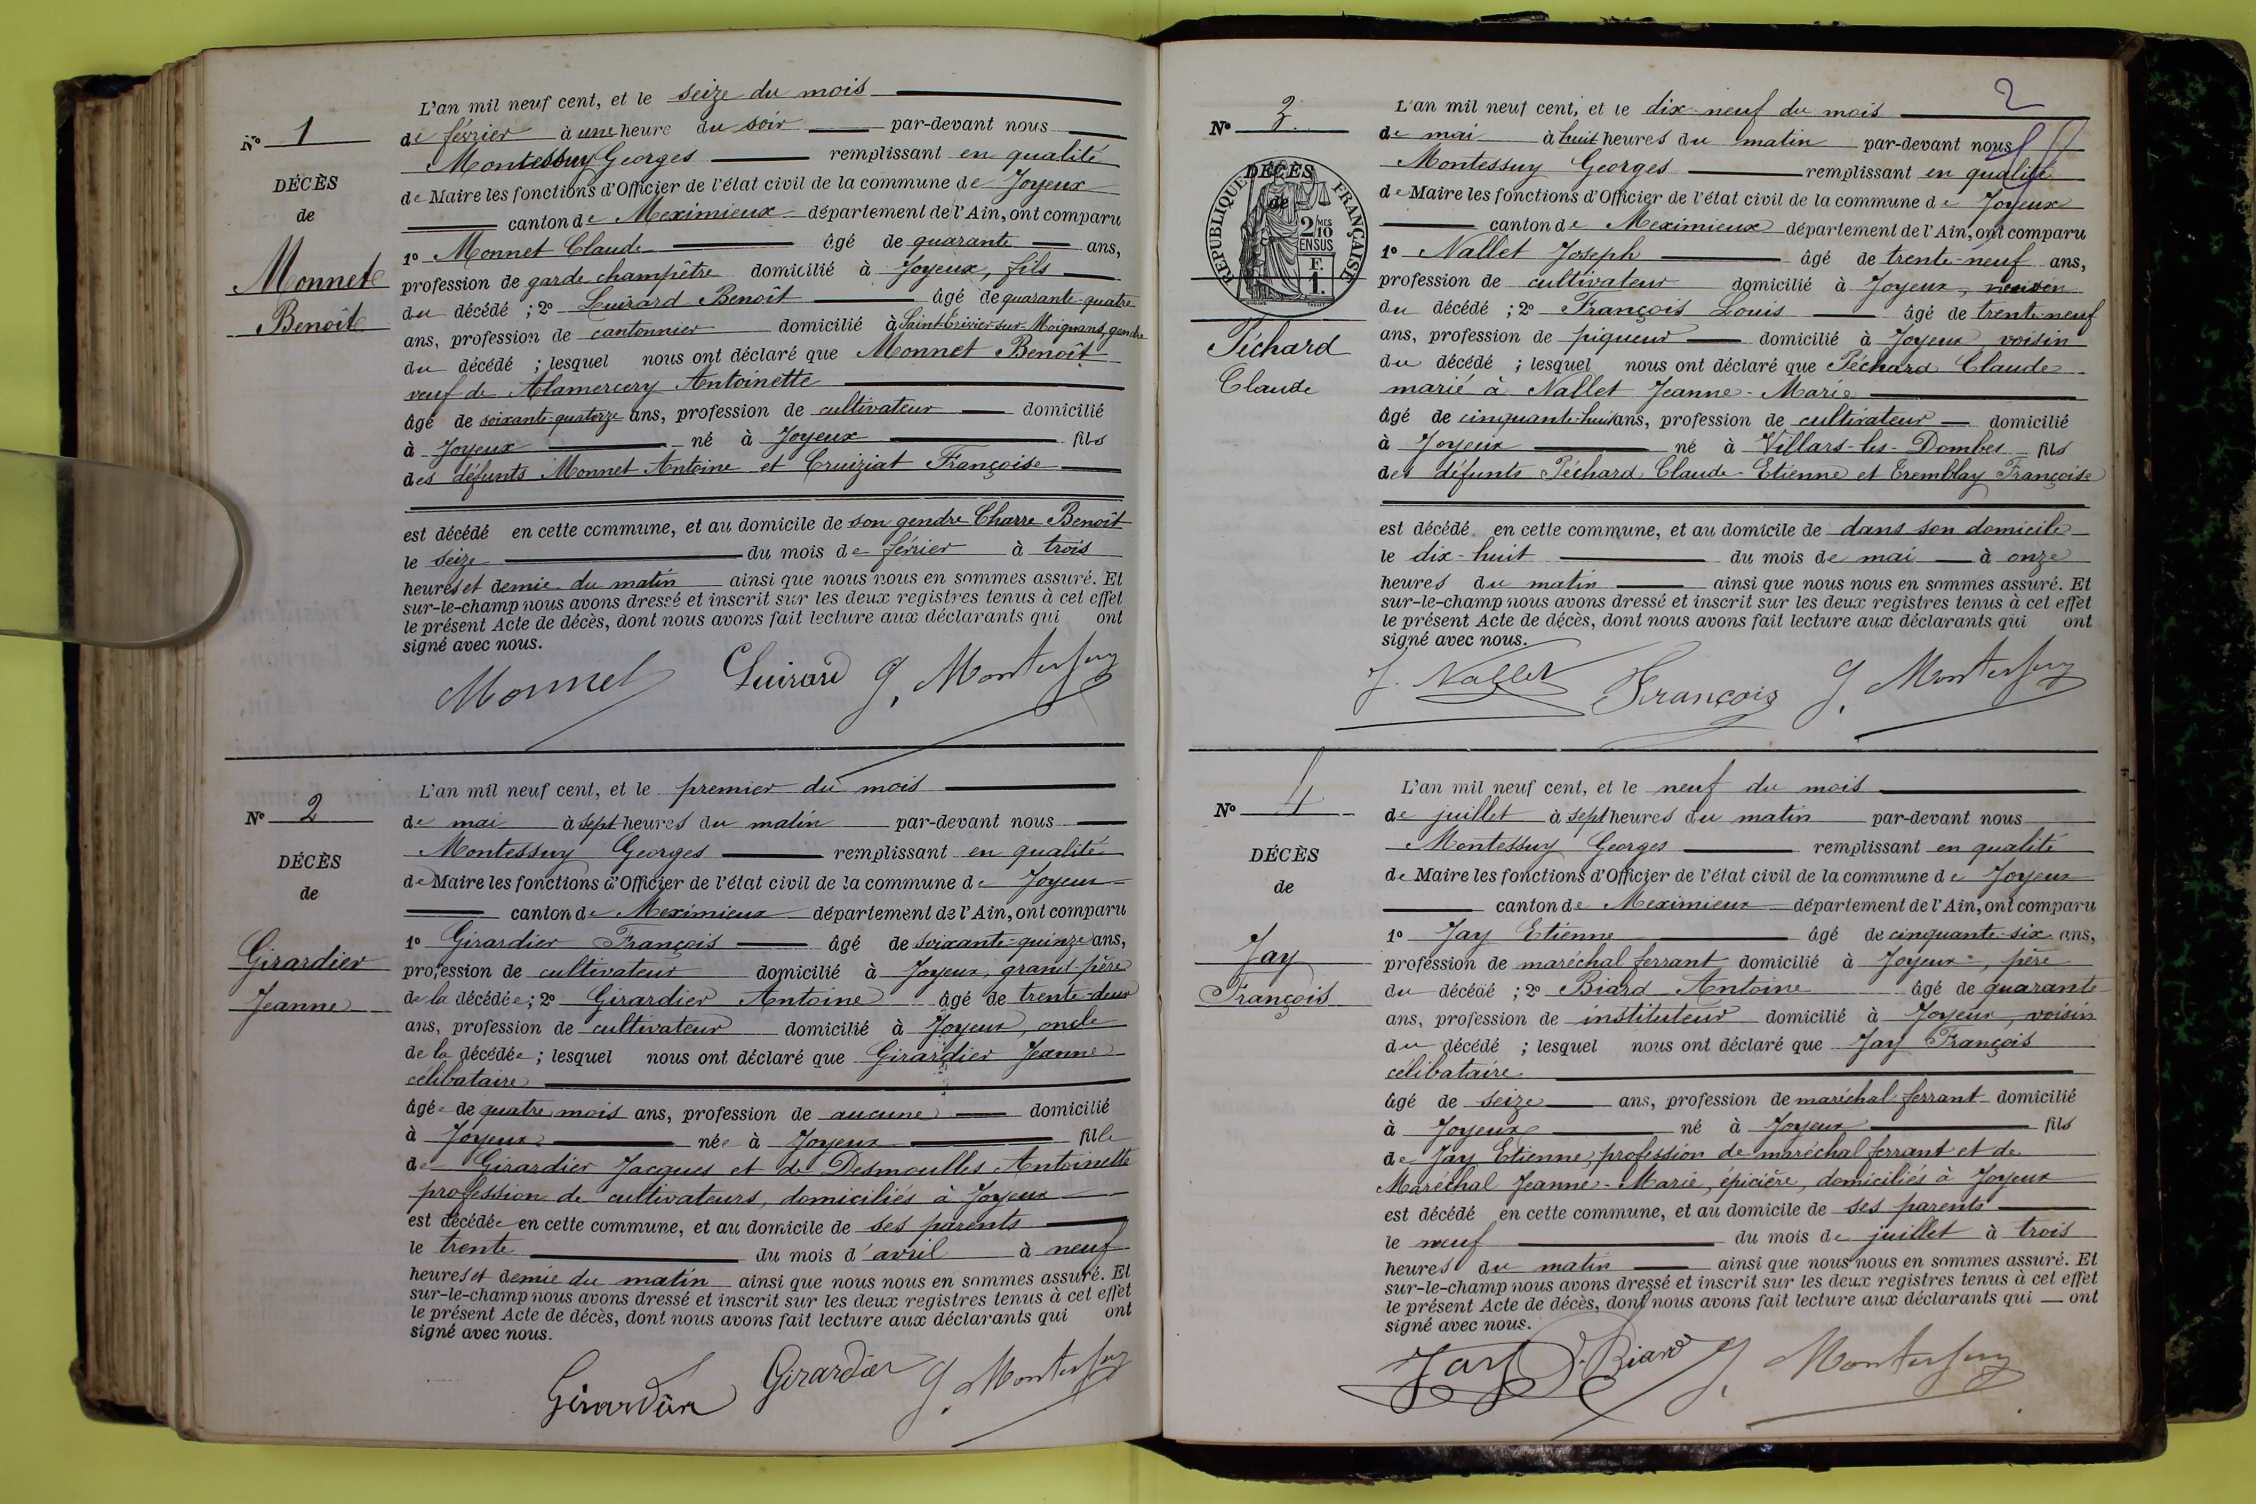 L'an mil neuf cent, et le seize du mois
No 1
de février à une heure du soir par-devant nous
Montessuy Georges remplissant en qualité
DÉCÈS
de Maire les fonctions d'Officier de l'état civil de la commune de Joyeux
de
canton de Meximieux département de l'Ain, ont comparu
Monnet
1o Monnet Claude âgé de quarante ans,
profession de garde champêtre domicilié à Joyeux, fils
Benoît
du décédé ; 2o Luirard Benoît âgé de quarante-quatre
ans, profession de cantonnier domicilié à Saint-Trivier-sur-Moignans, gendre
du décédé ; lesquel nous ont déclaré que Monnet Benoît
veuf de Alamercery Antoinette
âgé de soixante-quatorze ans, profession de cultivateur domicilié
à Joyeux né à Joyeux fils
des défunts Monnet Antoine et Cruiziat Françoise
est décédé en cette commune, et au domicile de son gendre Charre Benoît
le seize du mois de février à trois
heures et demie du matin ainsi que nous nous en sommes assuré. Et
sur-le-champ nous avons dressé et inscrit sur les deux registres tenus à cet effet
le présent Acte de décès, dont nous avons fait lecture aux déclarants qui ont
signé avec nous.
Monnet Luirard G. Montessuy
L'an mil neuf cent, et le premier du mois
No 2
de mai à sept heures du matin par-devant nous
Montessuy Georges remplissant en qualité
DÉCÈS
de Maire les fonctions d'Officier de l'état civil de la commune de Joyeux
de
canton de Meximieux département de l'Ain, ont comparu
Girardier
1o Girardier François âgé de soixante-quinze ans,
profession de cultivateur domicilié à Joyeux, grand-père
Jeanne
de la décédée ; 2o Girardier Antoine âgé de trente-deux
ans, profession de cultivateur domicilié à Joyeux, oncle
de la décédée ; lesquel nous ont déclaré que Girardier Jeanne
célibataire
âgée de quatre mois ans, profession de aucune domicilié
à Joyeux née à Joyeux fille
de Girardier Jacques et de Desmoulles Antoinette
profession de cultivateurs, domiciliés à Joyeux
est décédée en cette commune, et au domicile de ses parents
le trente du mois d'avril à neuf
heures et demie du matin ainsi que nous nous en sommes assuré. Et
sur-le-champ nous avons dressé et inscrit sur les deux registres tenus à cet effet
le présent Acte de décès, dont nous avons fait lecture aux déclarants qui ont
signé avec nous.
Girardier Girardier G. Montessuy
2
L'an mil neuf cent, et le dix-neuf du mois
No 3.
de mai à huit heures du matin par-devant nous
Montessuy Georges remplissant en qualité
DÉCÈS
de
RÉPUBLIQUE FRANÇAISE
2/10 MES
EN SUS
F.
1.
de Maire les fonctions d'Officier de l'état civil de la commune de Joyeux
canton de Meximieux département de l'Ain, ont comparu
1o Nallet Joseph âgé de trente-neuf ans,
profession de cultivateur domicilié à Joyeux, neveu
du décédé ; 2o François Louis âgé de trente-neuf
Péchard
ans, profession de piqueur domicilié à Joyeux voisin
du décédé ; lesquel nous ont déclaré que Péchard Claude
Claude
marié à Nallet Jeanne-Marie
âgé de cinquante-huit ans, profession de cultivateur domicilié
à Joyeux né à Villars-les-Dombes fils
des défunts Péchard Claude-Etienne et Tremblay Françoise
est décédé en cette commune, et au domicile de dans son domicile
le dix-huit du mois de mai à onze
heures du matin ainsi que nous nous en sommes assuré. Et
sur-le-champ nous avons dressé et inscrit sur les deux registres tenus à cet effet
le présent Acte de décès, dont nous avons fait lecture aux déclarants qui ont
signé avec nous.
J. Nallet François G. Montessuy
L'an mil neuf cent, et le neuf du mois
No 4
de juillet à sept heures du matin par-devant nous
Montessuy Georges remplissant en qualité
DÉCÈS
de Maire les fonctions d'Officier de l'état civil de la commune de Joyeux
de
canton de Meximieux département de l'Ain, ont comparu
Jay
1o Jay Etienne âgé de cinquante-six ans,
profession de maréchal ferrant domicilié à Joyeux, père
François
du décédé ; 2o Biard Antoine âgé de quarante
ans, profession de instituteur domicilié à Joyeux, voisin
du décédé ; lesquel nous ont déclaré que Jay François
célibataire
âgé de seize ans, profession de maréchal-ferrant domicilié
à Joyeux né à Joyeux fils
de Jay Etienne, profession de maréchal ferrant et de
Maréchal Jeanne-Marie, épicière, domiciliés à Joyeux
est décédé en cette commune, et au domicile de ses parents
le neuf du mois de juillet à trois
heures du matin ainsi que nous nous en sommes assuré. Et
sur-le-champ nous avons dressé et inscrit sur les deux registres tenus à cet effet
le présent Acte de décès, dont nous avons fait lecture aux déclarants qui ont
signé avec nous.
Jay Biard G. Montessuy